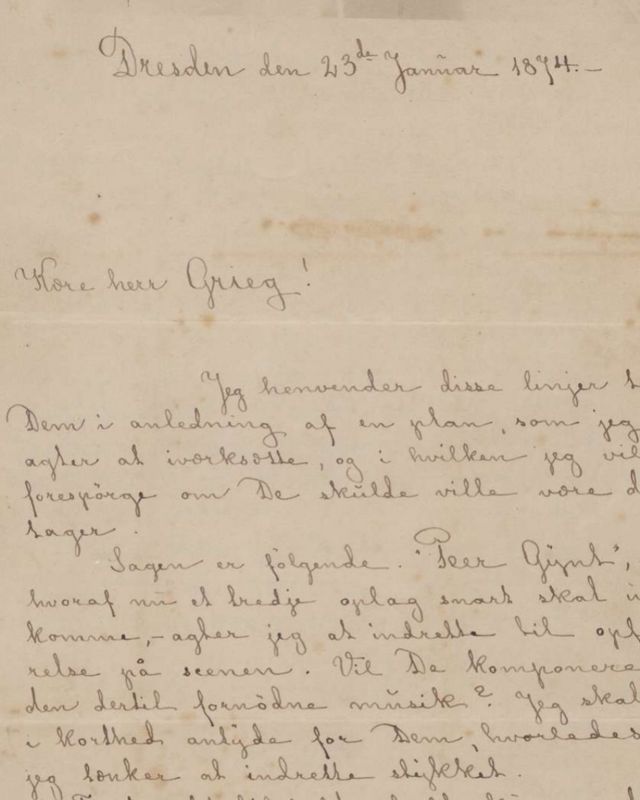 Dresden den 23de Januar 1874.–
Kære herr Grieg!
Jeg henvender disse linjer t
Dem i anledning af en plan, som jeg
agter at iværksætte, og i hvilken jeg vil
forespörge om De skulde ville være d
tager.
Sagen er følgende. "Peer Gynt",
hvoraf nu et tredje oplag snart skal u
komme, – agter jeg at indrette til opf
relse på scenen. Vil De komponere
den dertil fornödne musik? Jeg skal
i korthed antyde for Dem, hvorledes
jeg tænker at indrette stykket.